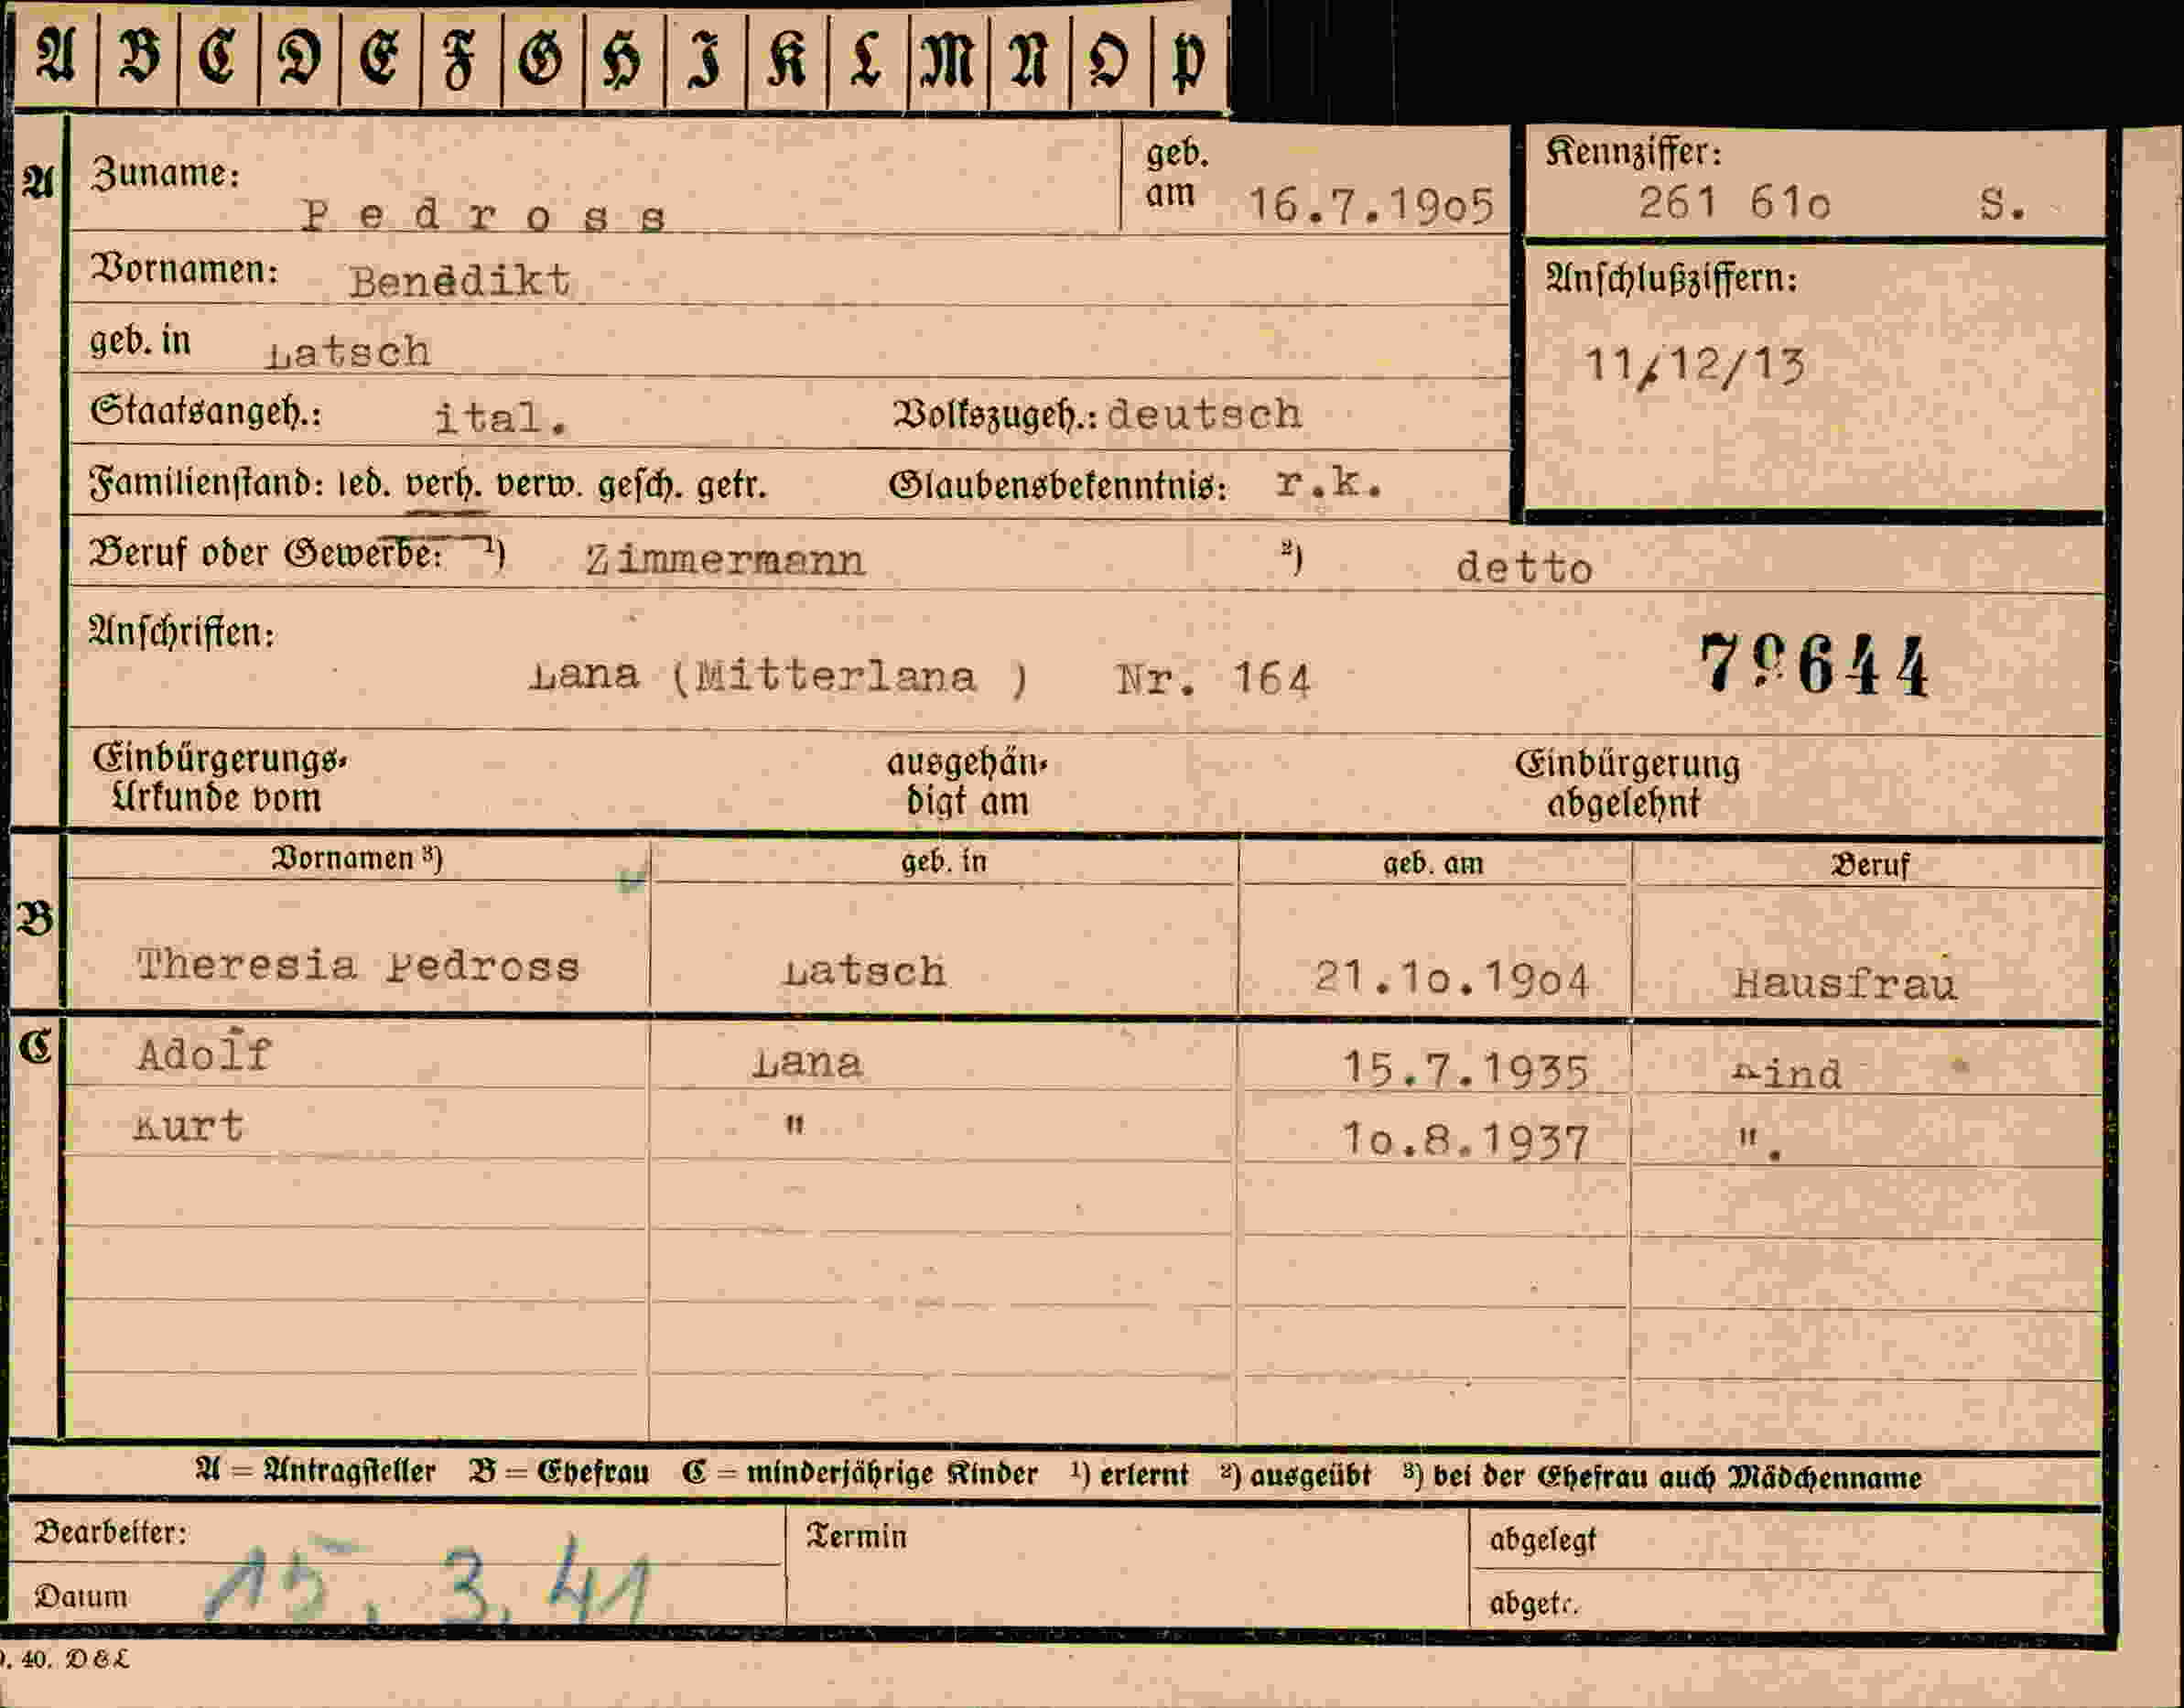 A B C D E F G H I K L M N O P
A Zuname: Pedross geb. am 16.7.1905 Kennziffer: 261 610 S.
Vornamen: Benedikt Anschlußziffern:
geb. in Latsch 11/12/13
Staatsangeh.: ital. Volkszugeh.: deutsch
Familienstand: led. verh. verw. gesch. getr. Glaubensbekenntnis: r.k.
Beruf oder Gewerbe: ¹) Zimmermann ²) detto
Anschriften:
Lana (Mitterlana ) Nr. 164
Einbürgerungs-Urkunde vom ausgehändigt am Einbürgerung abgelehnt
Vornamen ³) geb. in geb. am Beruf
B Theresia Pedross Latsch 21.10.1904 Hausfrau
C Adolf Lana 15.7.1935 Kind
Kurt " 10.8.1937 ".
A = Antragsteller B = Ehefrau C = minderjährige Kinder ¹) erlernt ²) ausgeübt ³) bei der Ehefrau auch Mädchenname
Bearbeiter: Termin abgelegt
Datum 15. 3. 41 abgetr.
40. D & L